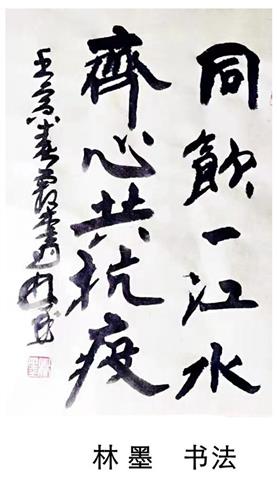 同飲一江水
齊心共抗疫
林墨 书法